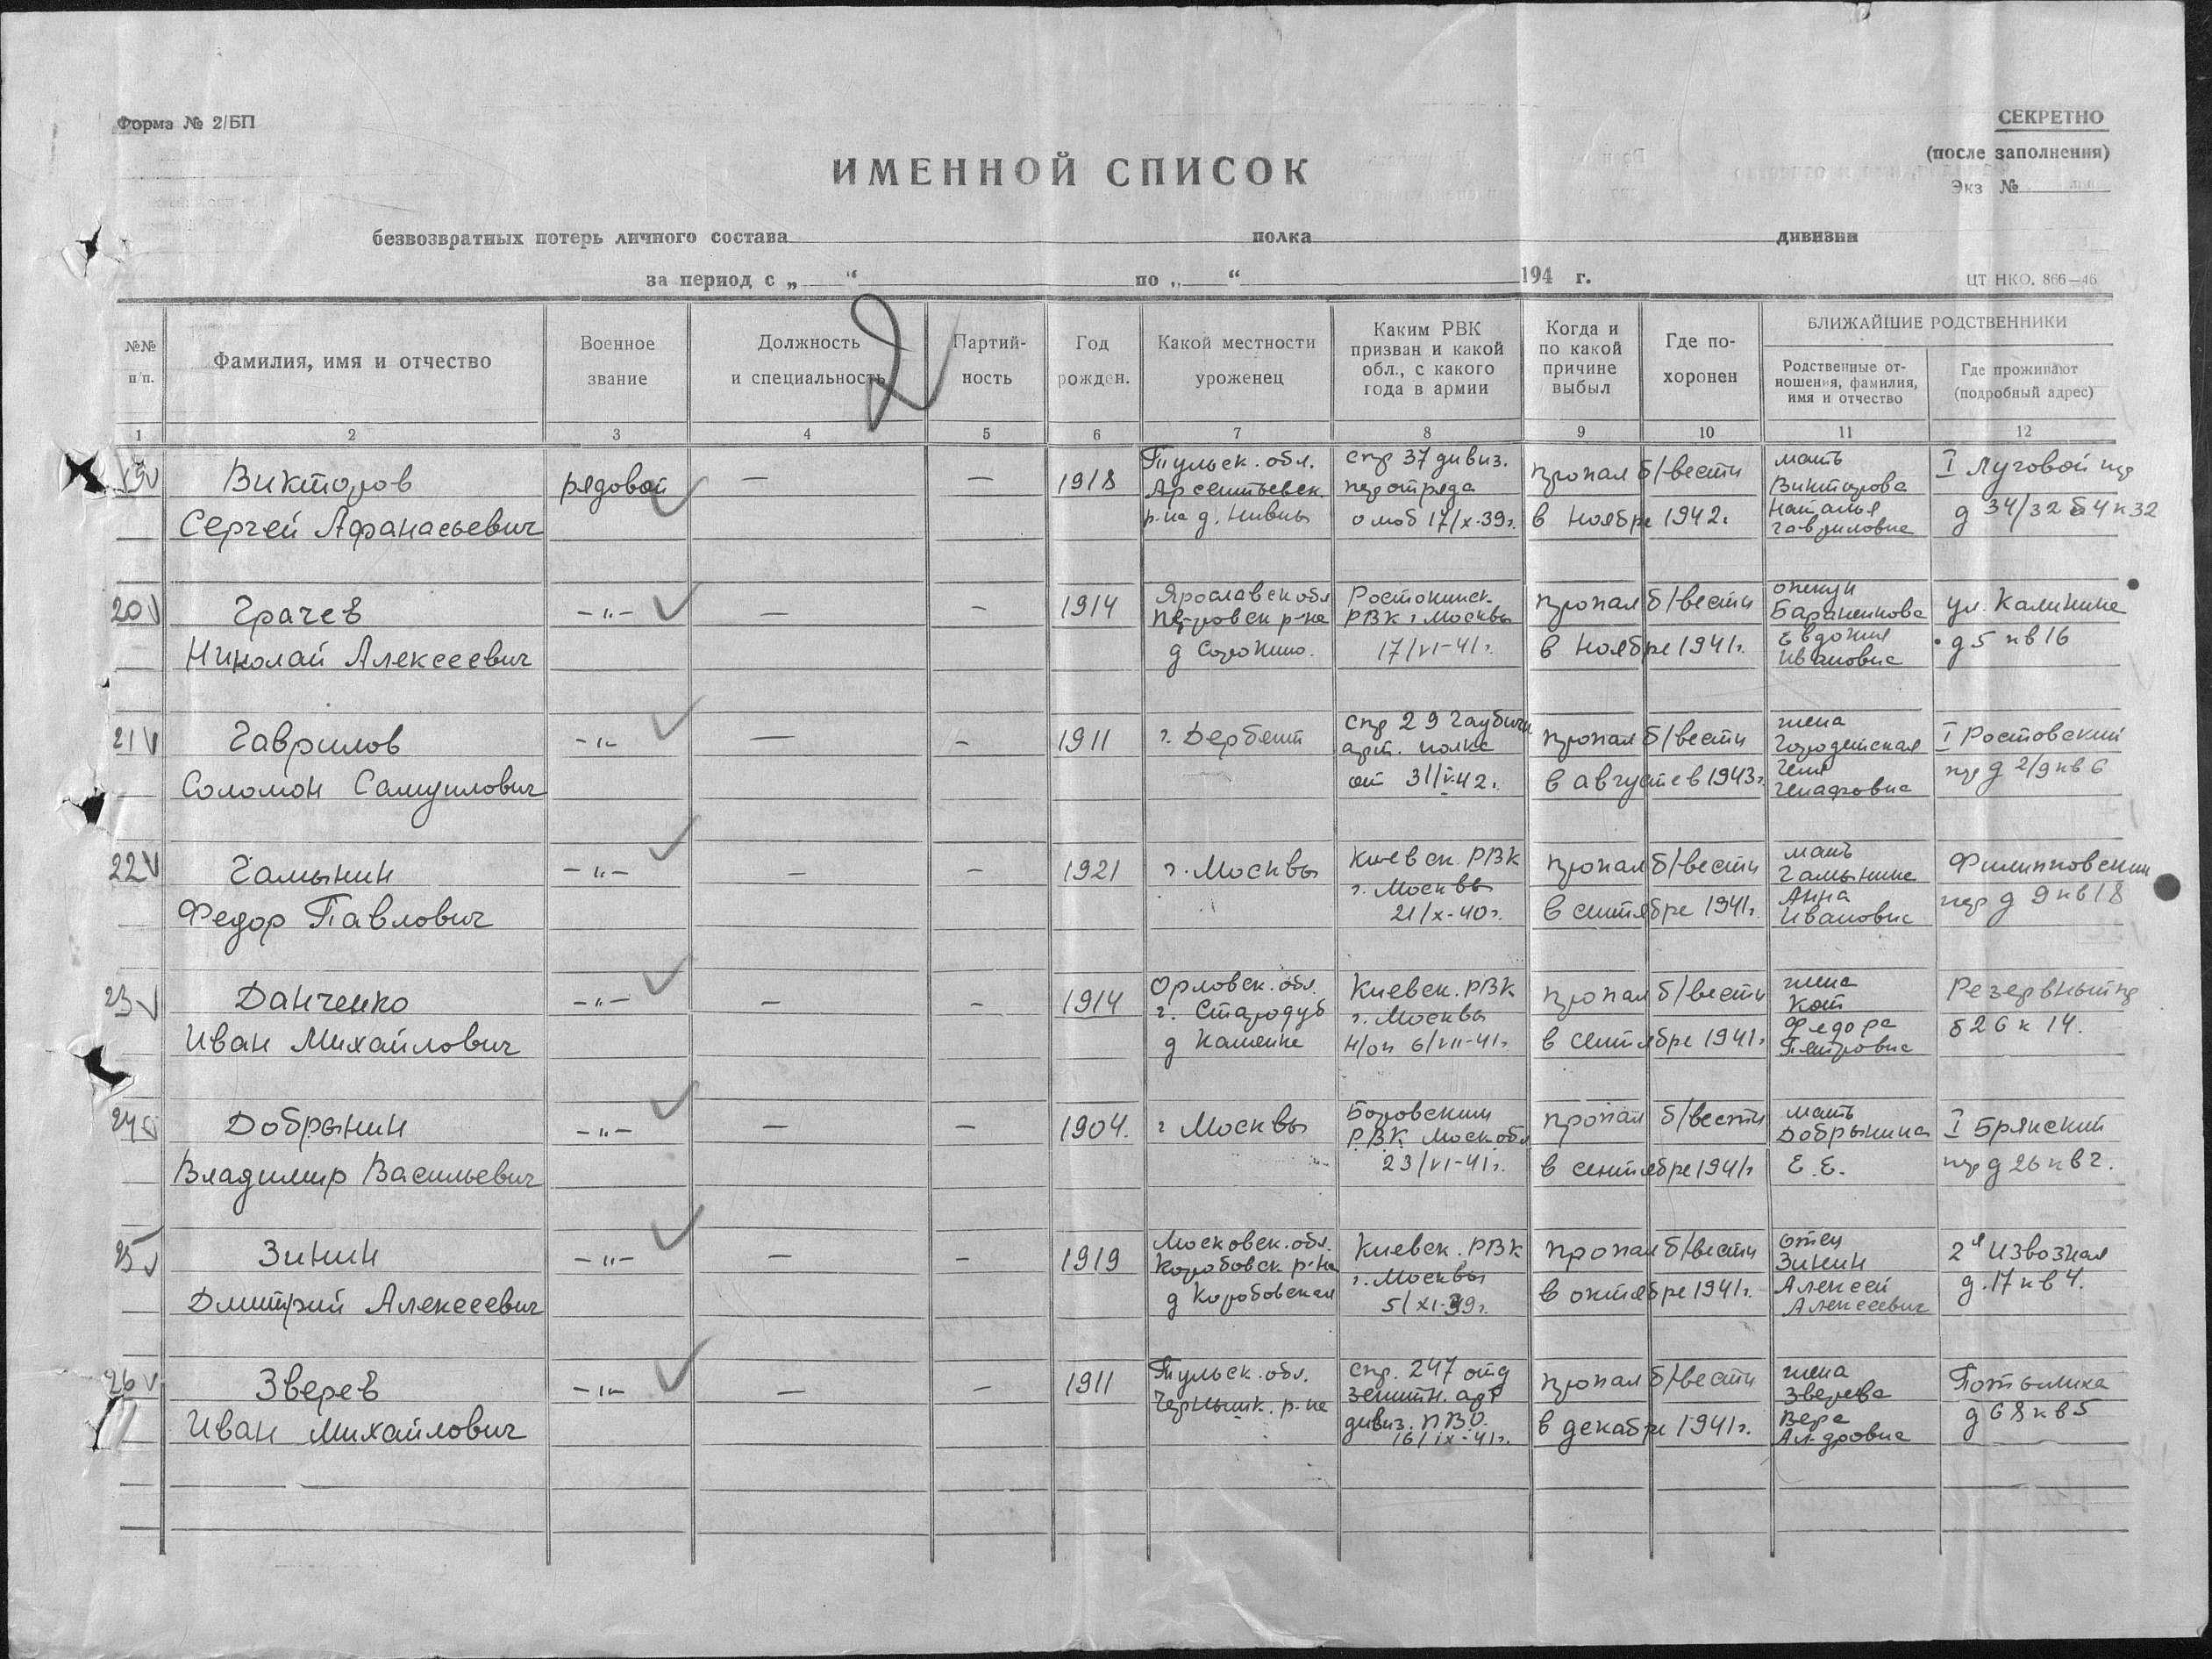 Форма № 2/БП
СЕКРЕТНО
(после заполнения)
Экз №
ИМЕННОЙ СПИСОК
безвозвратных потерь личного состава полка дивизии
за период с „ “ по „ “ 194 г.
ЦТ НКО. 866—46
№№ п/п.
Фамилия, имя и отчество
Военное звание
Должность и специальность
Партий-ность
Год рожден.
Какой местности уроженец
Каким РВК призван и какой обл., с какого года в армии
Когда и по какой причине выбыл
Где по-хоронен
БЛИЖАЙШИЕ РОДСТВЕННИКИ
Родственные от-ношения, фамилия, имя и отчество
Где проживают (подробный адрес)
1 2 3 4 5 6 7 8 9 10 11 12
19
Викторов
Сергей Афанасьевич
рядовой
—
—
1918
Тульск. обл.
Арсентьевск.
р-на д. Нивны
спр 37 дивиз.
пер отряда
о моб 17/X-39г.
пропал б/вести
в ноябре 1942г.
мать
Викторова
Наталья
Гавриловна
I Луговой пр
д 34/32 б 4 к 32
20
Грачев
Николай Алексеевич
-"-
—
—
1914
Ярославск обл
Петровск р-на
д Сорокино.
Ростокинск.
РВК г Москвы
17/VI-41г.
пропал б/вести
в ноябре 1941г.
опекун
Баранникова
Евдокия
Ивановна
ул. Калинина
д 5 кв 16
21
Гаврилов
Соломон Самуилович
-"-
—
—
1911
г. Дербент
спр 29 Гаубичн
арт. полка
от 31/V-42г.
пропал б/вести
в августе в 1943г.
жена
Городетская
I Ростовский
пр д 2/9 кв 6
22
Гамынин
Федор Павлович
-"-
—
—
1921
г. Москвы
Киевск РВК
г. Москвы
21/X-40г.
пропал б/вести
в сентябре 1941г.
мать
Гамынина
Анна
Ивановна
Филипповский
пер д 9 кв 18
23
Данченко
Иван Михайлович
-"-
—
—
1914
Орловск. обл.
г. Стародуб
д Каменка
Киевск. РВК
г. Москвы
н/оп 6/VII-41г.
пропал б/вести
в сентябре 1941г.
жена
Кот
Федора
Петровна
Резервный пр
б 26 к 14.
24
Добрынин
Владимир Васильевич
-"-
—
—
1904.
г Москвы
Боровским
РВК Моск обл
23/VI-41г.
пропал б/вести
в сентябре 1941г
мать
Добрынина
Е. Е.
I Брянский
пр д 26 кв 2.
25
Зинин
Дмитрий Алексеевич
-"-
—
—
1919
Московск. обл.
Коробовск р-на
д Коробовская
Киевск. РВК
г. Москвы
5/XI-39г.
пропал б/вести
в октябре 1941г.
отец
Зинин
Алексей
Алексеевич
2я Извозная
д. 17 кв 4.
26
Зверев
Иван Михайлович
-"-
—
—
1911
Тульск. обл.
р-на
спр. 247 отд
зенитн. арт
дивиз. ПВО.
16/IX-41г.
пропал б/вести
в декабре 1941г.
жена
Зверева
Вера
Ал-дровна
Потылиха
д 68 кв 5